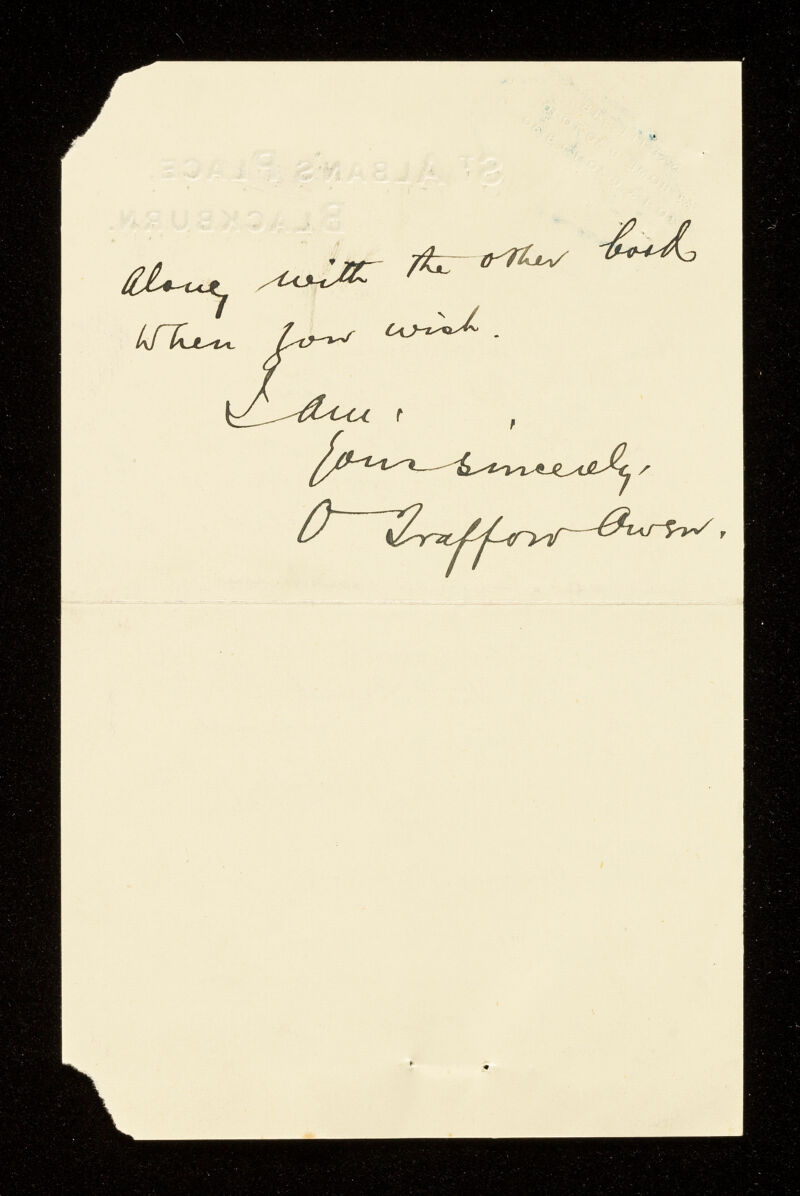 ST ALBAN'S PLACE.
BLACKBURN.
along with the other book
when you wish.
I am.
Yours sincerely,
O Trafford Owen.